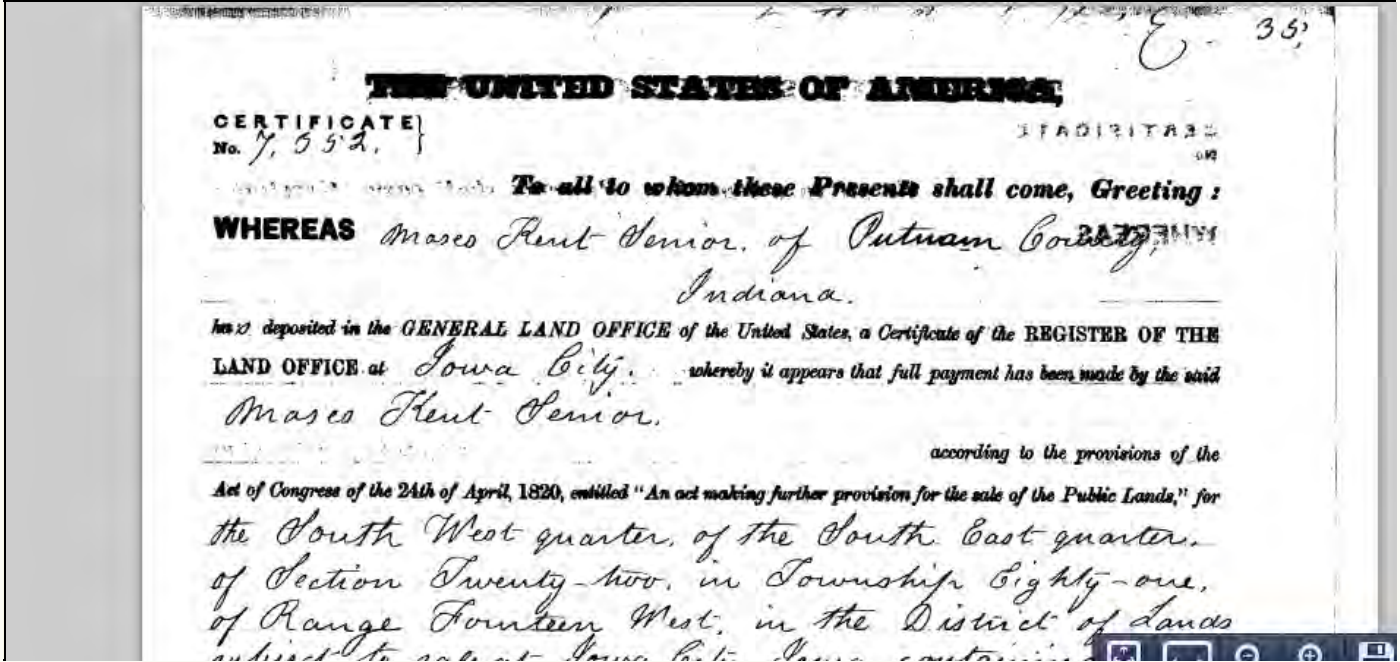 35,
THE UNITED STATES OF AMERICA,
CERTIFICATE
No. 7,552.
To all to whom these Presents shall come, Greeting:
WHEREAS Moses Kent Senior, of Putnam County,
Indiana.
has deposited in the GENERAL LAND OFFICE of the United States, a Certificate of the REGISTER OF THE
LAND OFFICE at Iowa City. whereby it appears that full payment has been made by the said
Moses Kent Senior.
according to the provisions of the
Act of Congress of the 24th of April, 1820, entitled "An act making further provision for the sale of the Public Lands," for
the South West quarter, of the South East quarter,
of Section Twenty-two, in Township Eighty-one,
of Range Fourteen West, in the District of Lands
subject to sale at Iowa City, Iowa, containing